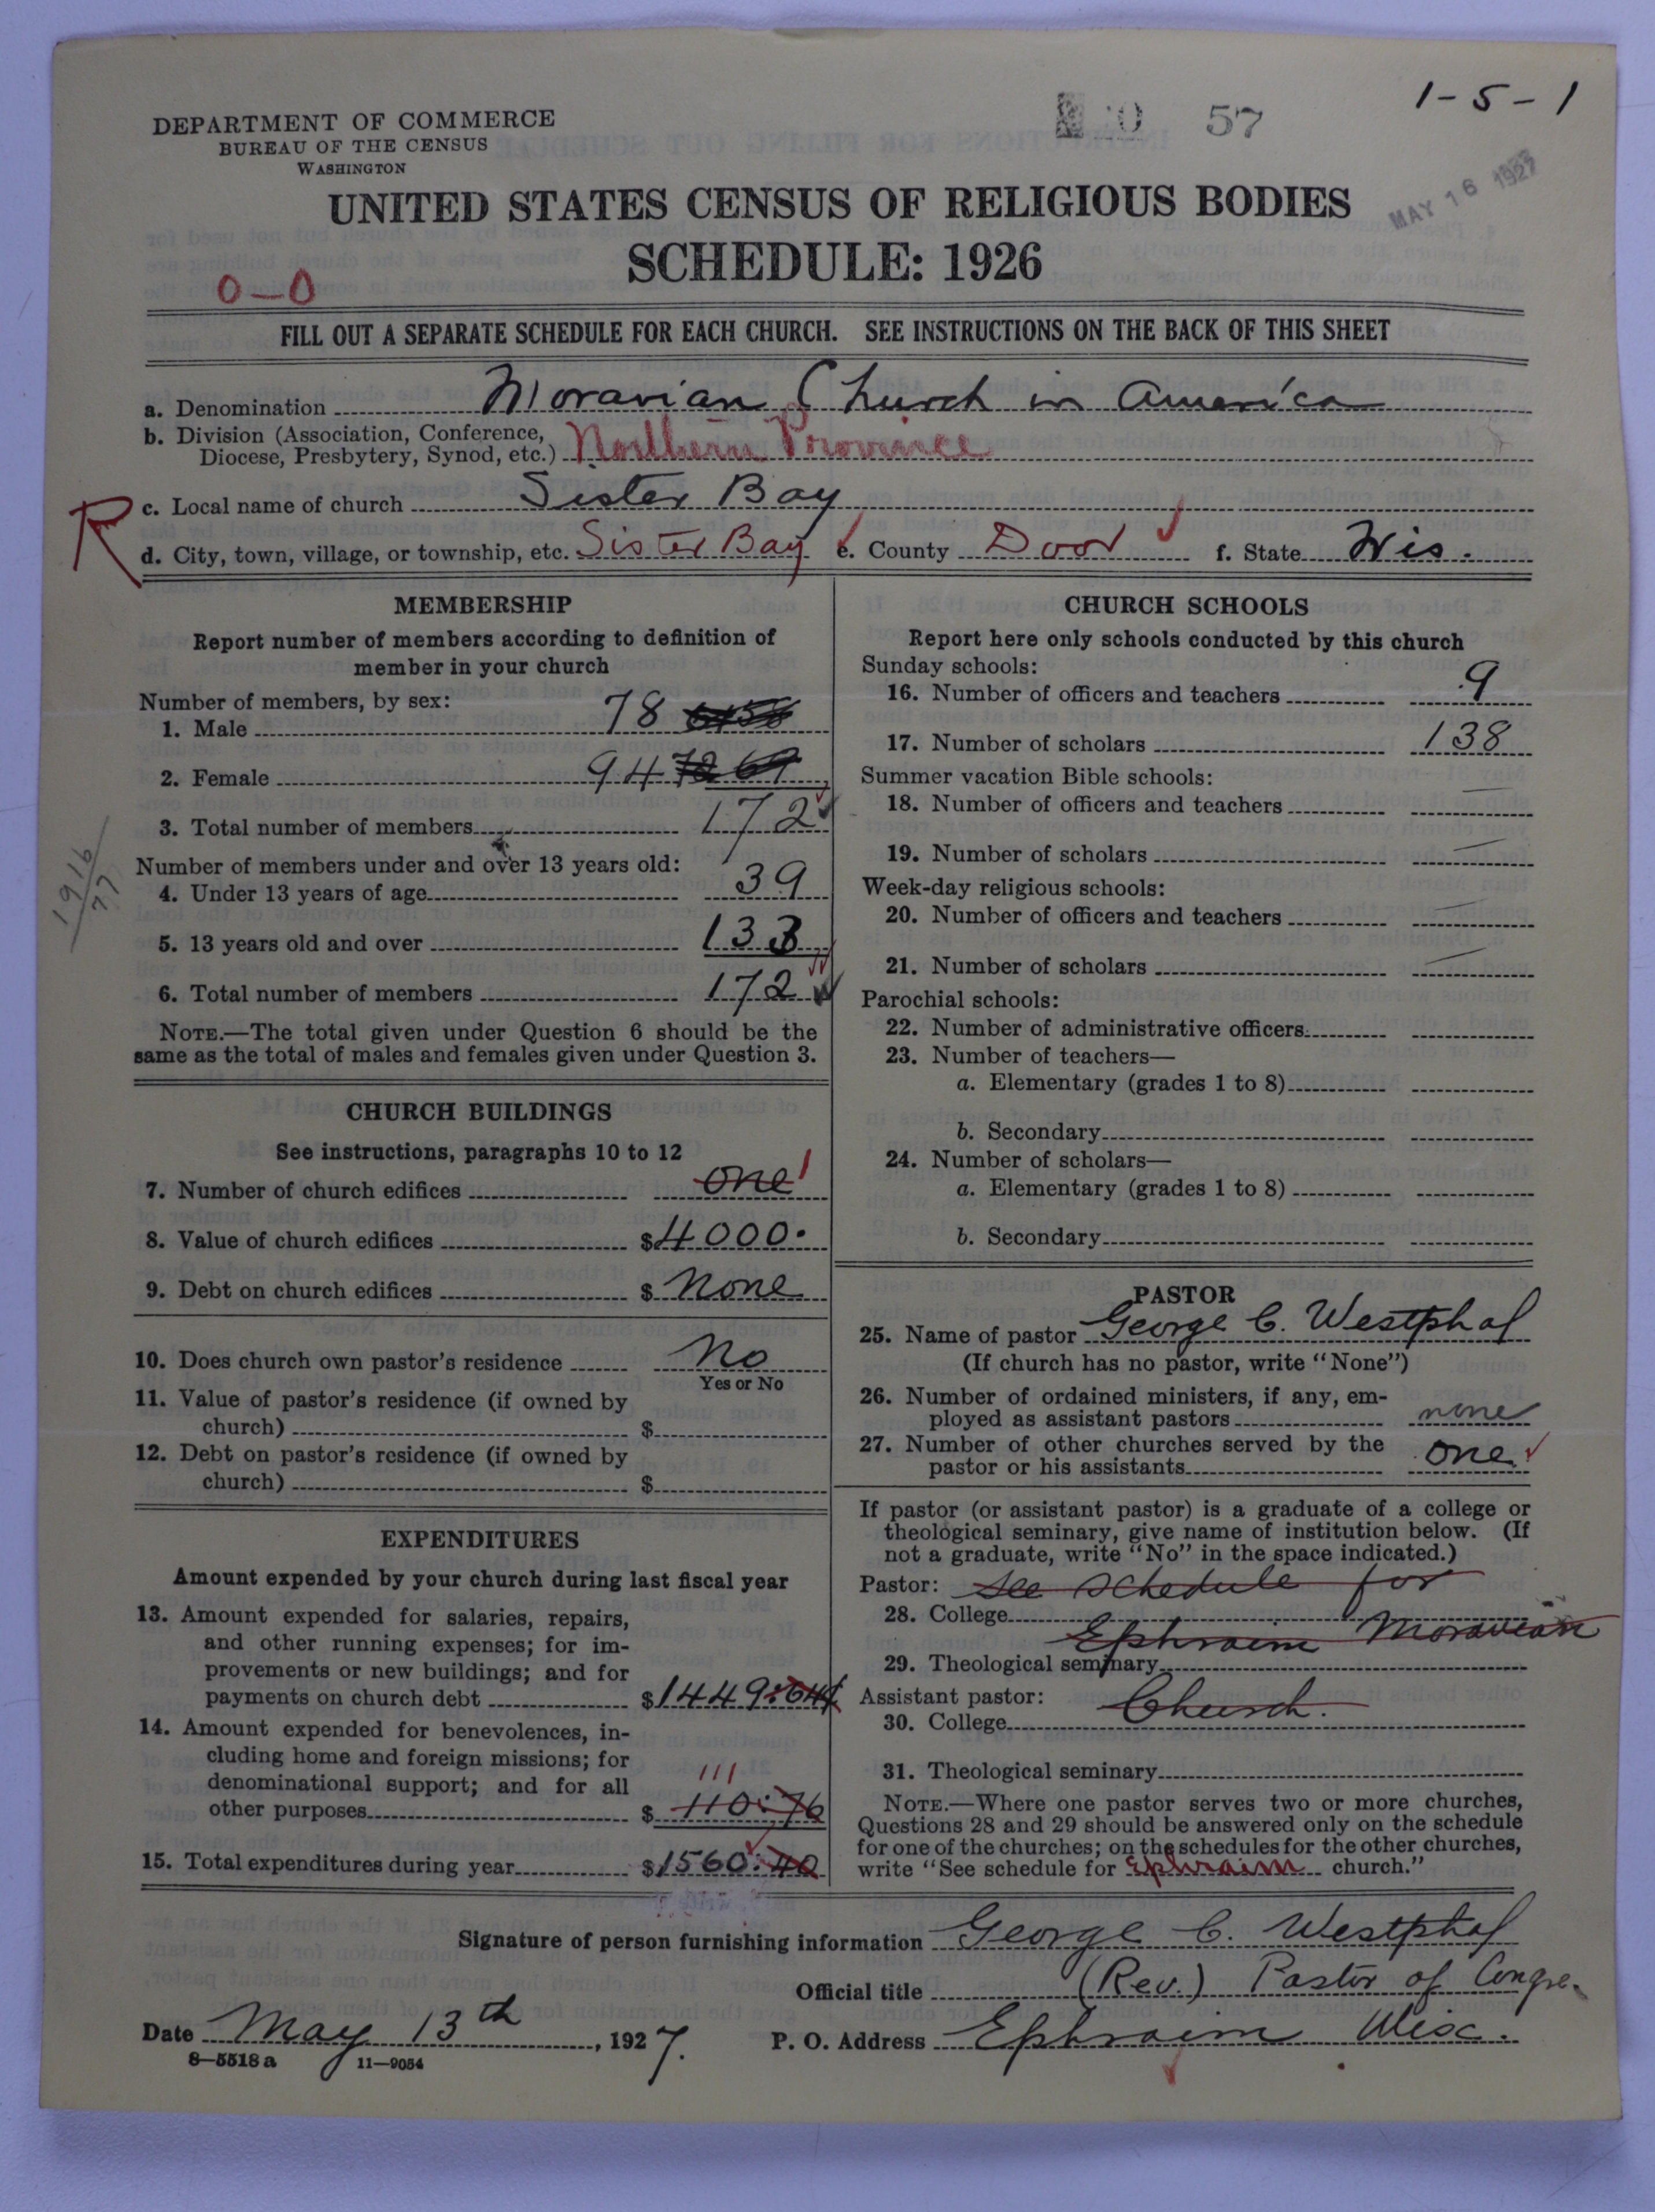 1-5-1
57
DEPARTMENT OF COMMERCE
BUREAU OF THE CENSUS
WASHINGTON
MAY 16 1927
UNITED STATES CENSUS OF RELIGIOUS BODIES
SCHEDULE: 1926
0-0
FILL OUT A SEPARATE SCHEDULE FOR EACH CHURCH. SEE INSTRUCTIONS ON THE BACK OF THIS SHEET
a. Denomination Moravian Church in America
b. Division (Association, Conference,
Diocese, Presbytery, Synod, etc.) Northern Province
R
c. Local name of church Sister Bay
d. City, town, village, or township, etc. Sister Bay e. County Door f. State Wis.
MEMBERSHIP
Report number of members according to definition of
member in your church
Number of members, by sex:
1. Male 78
2. Female 94 72 69
3. Total number of members 172
1916
77
Number of members under and over 13 years old:
4. Under 13 years of age 39
5. 13 years old and over 133
6. Total number of members 172
NOTE.—The total given under Question 6 should be the
same as the total of males and females given under Question 3.
CHURCH BUILDINGS
See instructions, paragraphs 10 to 12
7. Number of church edifices one 1
8. Value of church edifices $4000.
9. Debt on church edifices $ None
10. Does church own pastor's residence No
Yes or No
11. Value of pastor's residence (if owned by
church) $
12. Debt on pastor's residence (if owned by
church) $
EXPENDITURES
Amount expended by your church during last fiscal year
13. Amount expended for salaries, repairs,
and other running expenses; for im-
provements or new buildings; and for
payments on church debt $1449:64
14. Amount expended for benevolences, in-
cluding home and foreign missions; for
denominational support; and for all
111
other purposes $ 110:76
15. Total expenditures during year $1560:40
CHURCH SCHOOLS
Report here only schools conducted by this church
Sunday schools:
16. Number of officers and teachers 9
17. Number of scholars 138
Summer vacation Bible schools:
18. Number of officers and teachers —
19. Number of scholars —
Week-day religious schools:
20. Number of officers and teachers —
21. Number of scholars —
Parochial schools:
22. Number of administrative officers
23. Number of teachers—
a. Elementary (grades 1 to 8)
b. Secondary
24. Number of scholars—
a. Elementary (grades 1 to 8)
b. Secondary
PASTOR
25. Name of pastor George C. Westphal
(If church has no pastor, write "None")
26. Number of ordained ministers, if any, em-
ployed as assistant pastors none
27. Number of other churches served by the
pastor or his assistants one
If pastor (or assistant pastor) is a graduate of a college or
theological seminary, give name of institution below. (If
not a graduate, write "No" in the space indicated.)
Pastor: See schedule for
28. College
Ephraim Moravian
29. Theological seminary
Assistant pastor: Church.
30. College
31. Theological seminary
NOTE.—Where one pastor serves two or more churches,
Questions 28 and 29 should be answered only on the schedule
for one of the churches; on the schedules for the other churches,
write "See schedule for Ephraim church."
Signature of person furnishing information George C. Westphal
Official title (Rev.) Pastor of Congre.
Date May 13th, 1927. P. O. Address Ephraim Wisc.
8—5518 a 11—9054